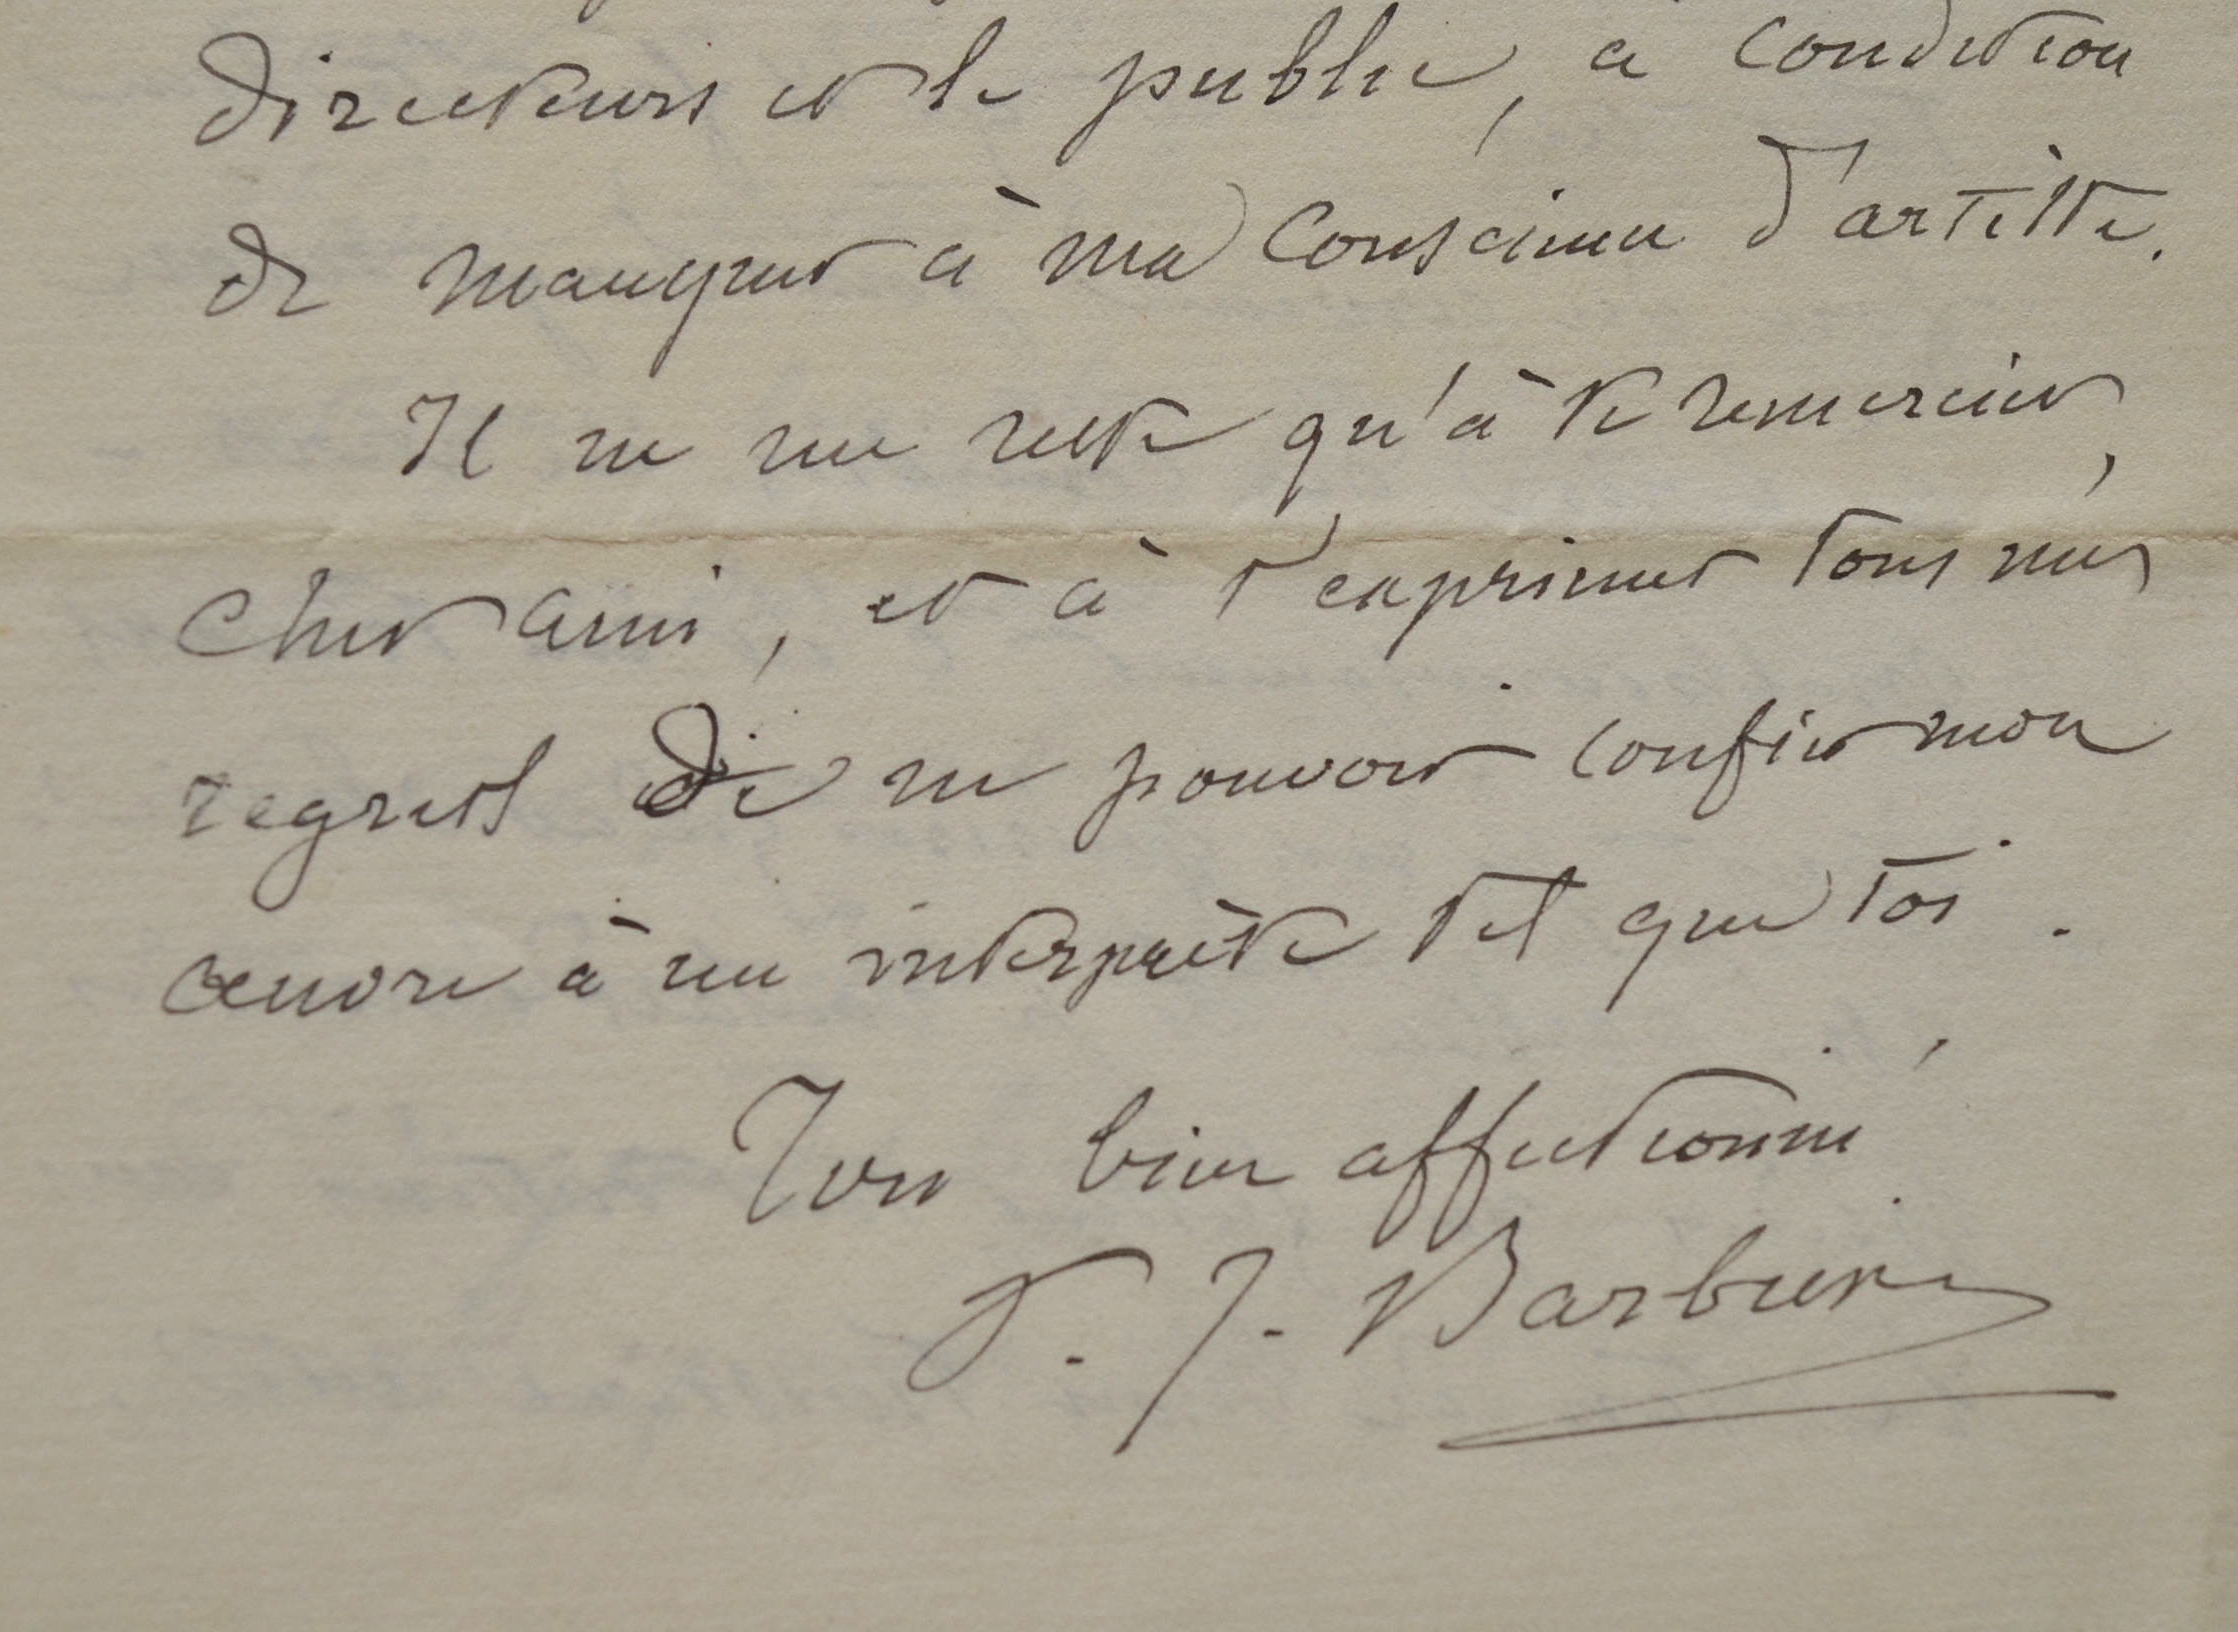 directeurs et le public, à condition
de manquer à ma conscience d'artiste.
Il ne me reste qu'à te remercier,
cher ami, et à t'exprimer tous mes
regrets de ne pouvoir confier mon
œuvre à un interprète tel que toi.
Ton bien affectionné
P. J. Barbier